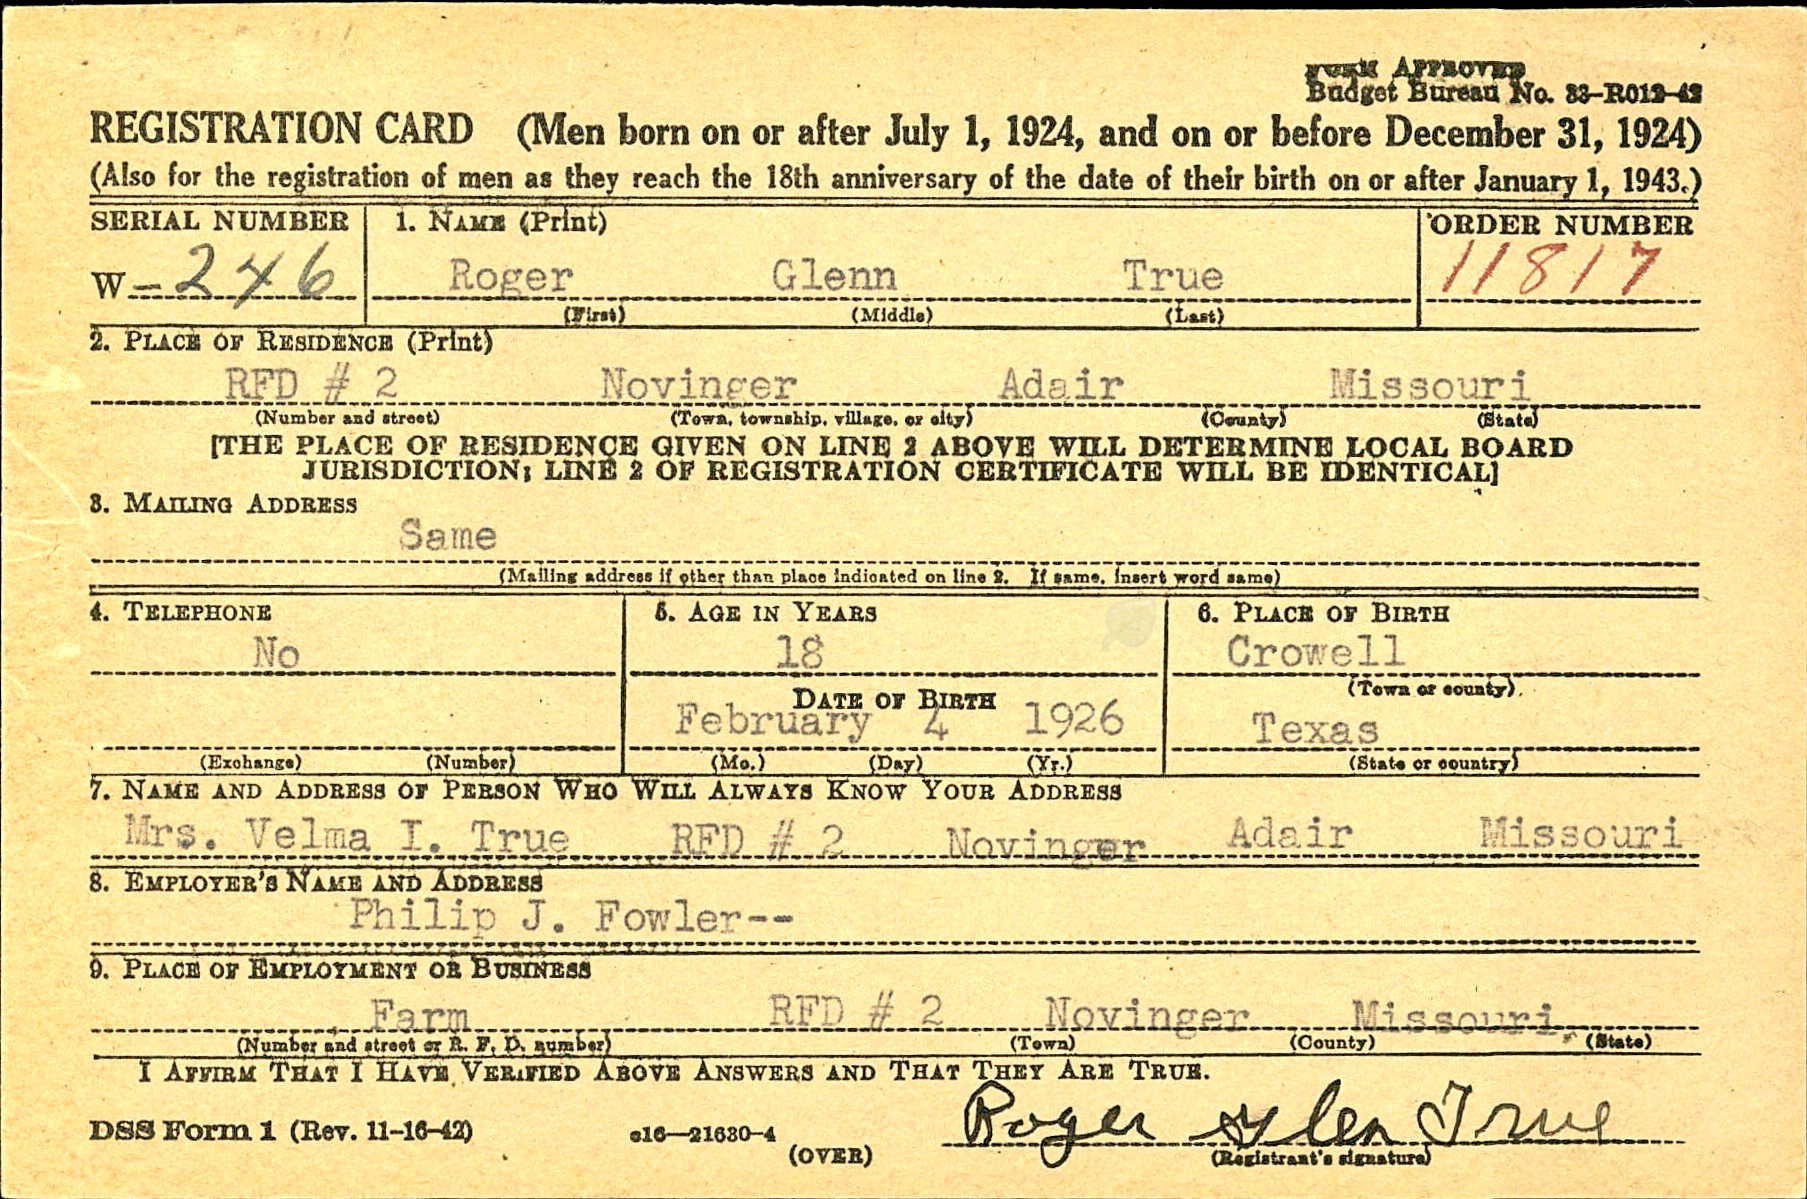 FORM APPROVED
Budget Bureau No. 33-R012-42
REGISTRATION CARD (Men born on or after July 1, 1924, and on or before December 31, 1924)
(Also for the registration of men as they reach the 18th anniversary of the date of their birth on or after January 1, 1943.)
SERIAL NUMBER 1. NAME (Print) ORDER NUMBER
W-246 Roger Glenn True 11817
(First) (Middle) (Last)
2. PLACE OF RESIDENCE (Print)
RFD # 2 Novinger Adair Missouri
(Number and street) (Town, township, village, or city) (County) (State)
[THE PLACE OF RESIDENCE GIVEN ON LINE 2 ABOVE WILL DETERMINE LOCAL BOARD
JURISDICTION; LINE 2 OF REGISTRATION CERTIFICATE WILL BE IDENTICAL]
3. MAILING ADDRESS
Same
(Mailing address if other than place indicated on line 2. If same, insert word same)
4. TELEPHONE 5. AGE IN YEARS 6. PLACE OF BIRTH
No 18 Crowell
(Town or county)
DATE OF BIRTH
February 4 1926 Texas
(Exchange) (Number) (Mo.) (Day) (Yr.) (State or country)
7. NAME AND ADDRESS OF PERSON WHO WILL ALWAYS KNOW YOUR ADDRESS
Mrs. Velma I. True RFD # 2 Novinger Adair Missouri
8. EMPLOYER'S NAME AND ADDRESS
Philip J. Fowler--
9. PLACE OF EMPLOYMENT OR BUSINESS
Farm RFD # 2 Novinger Missouri
(Number and street or R. F. D. number) (Town) (County) (State)
I AFFIRM THAT I HAVE VERIFIED ABOVE ANSWERS AND THAT THEY ARE TRUE.
Roger Glen True
DSS Form 1 (Rev. 11-16-42) c16—21630-4 (OVER) (Registrant's signature)